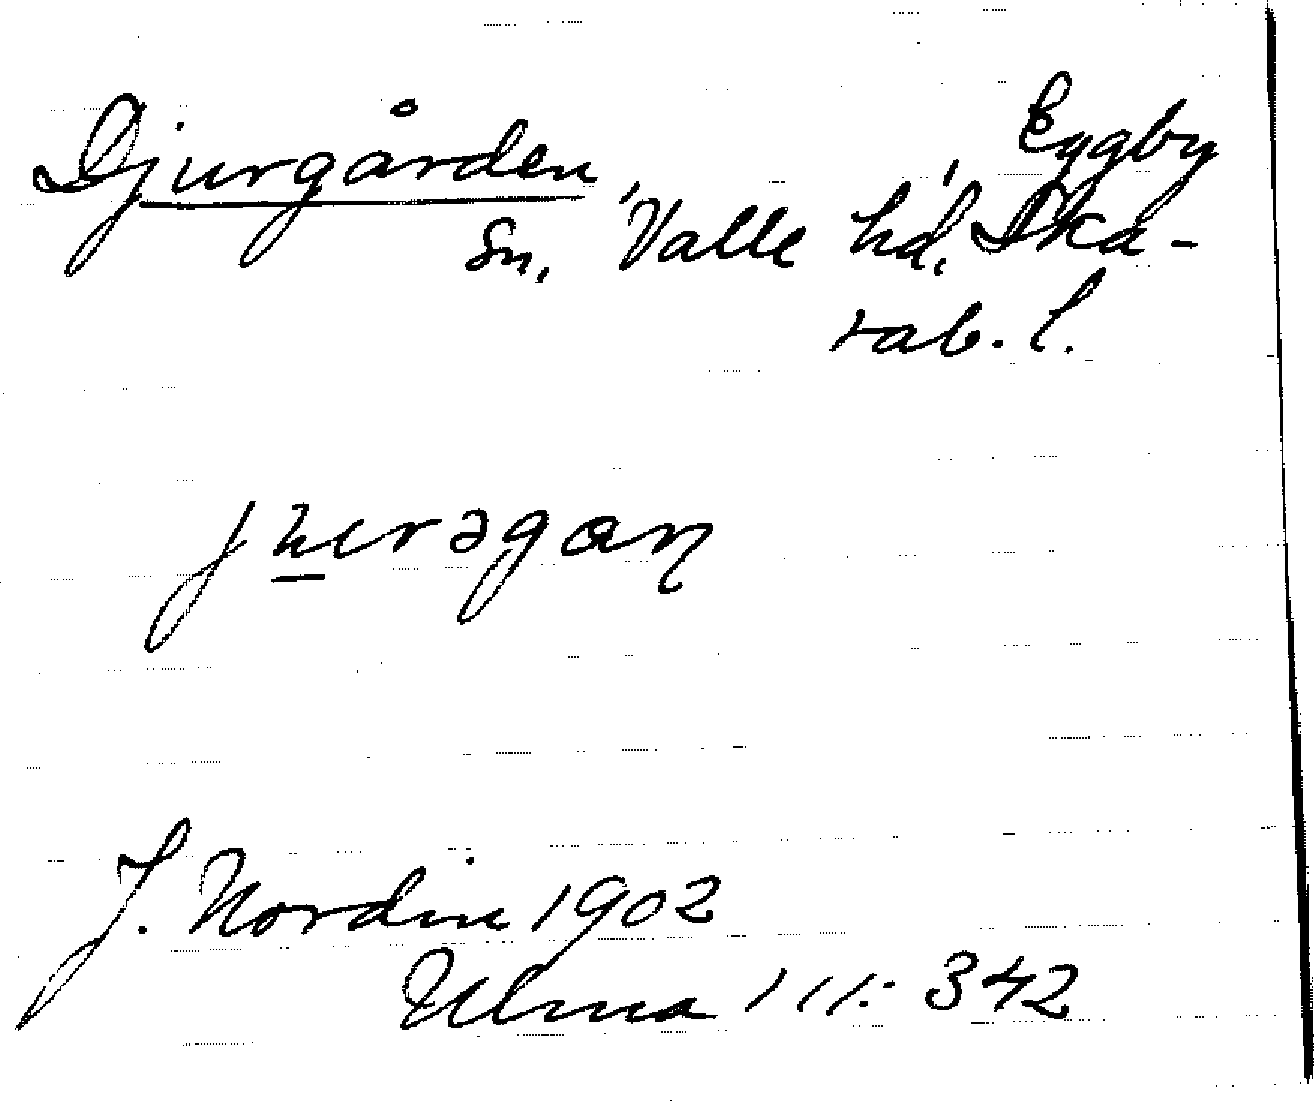 Djurgården, Eggby
Sn, Valle hd, Ska-
rab. l.
J. Nordin 1902
Ulma 111: 342